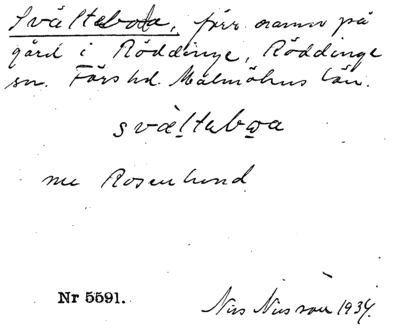 Svälteboda, förr namn på
gård i Röddinge, Röddinge
sn. Färs hd. Malmöhus län.
svältebωa
nu Rosenlund
Nr 5591.
Nils Nilsson 1934.